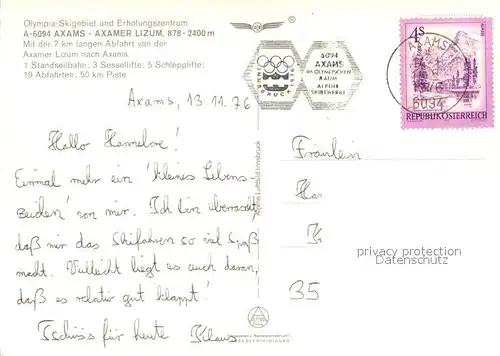 Olympia-Skigebiet und Erholungszentrum
A-6094 AXAMS - AXAMER LIZUM, 878 - 2400 m
Mit der 7 km langen Abfahrt von der
Axamer Lizum nach Axams.
1 Standseilbahn; 3 Sessellifte; 5 Schlepplifte;
19 Abfahrten; 50 km Piste
INNSBRUCK
6094
AXAMS
IM OLYMPISCHEN
RAUM
ALPINE
SKIBEWERBE
AXAMS
6094
4S
REPUBLIK ÖSTERREICH
Axams, 13 11. 76
Hallo Hannelore!
Einmal mehr ein 'kleines Lebens-
zeichen' von mir. Ich bin überrascht,
daß mir das Skifahren so viel Spaß
macht. Vielleicht liegt es auch daran,
daß es relativ gut klappt!
Tschüss für heute Klaus
Alpine Luftbild Innsbruck
Fräulein
Ha
K
35
privacy protection
Datenschutz